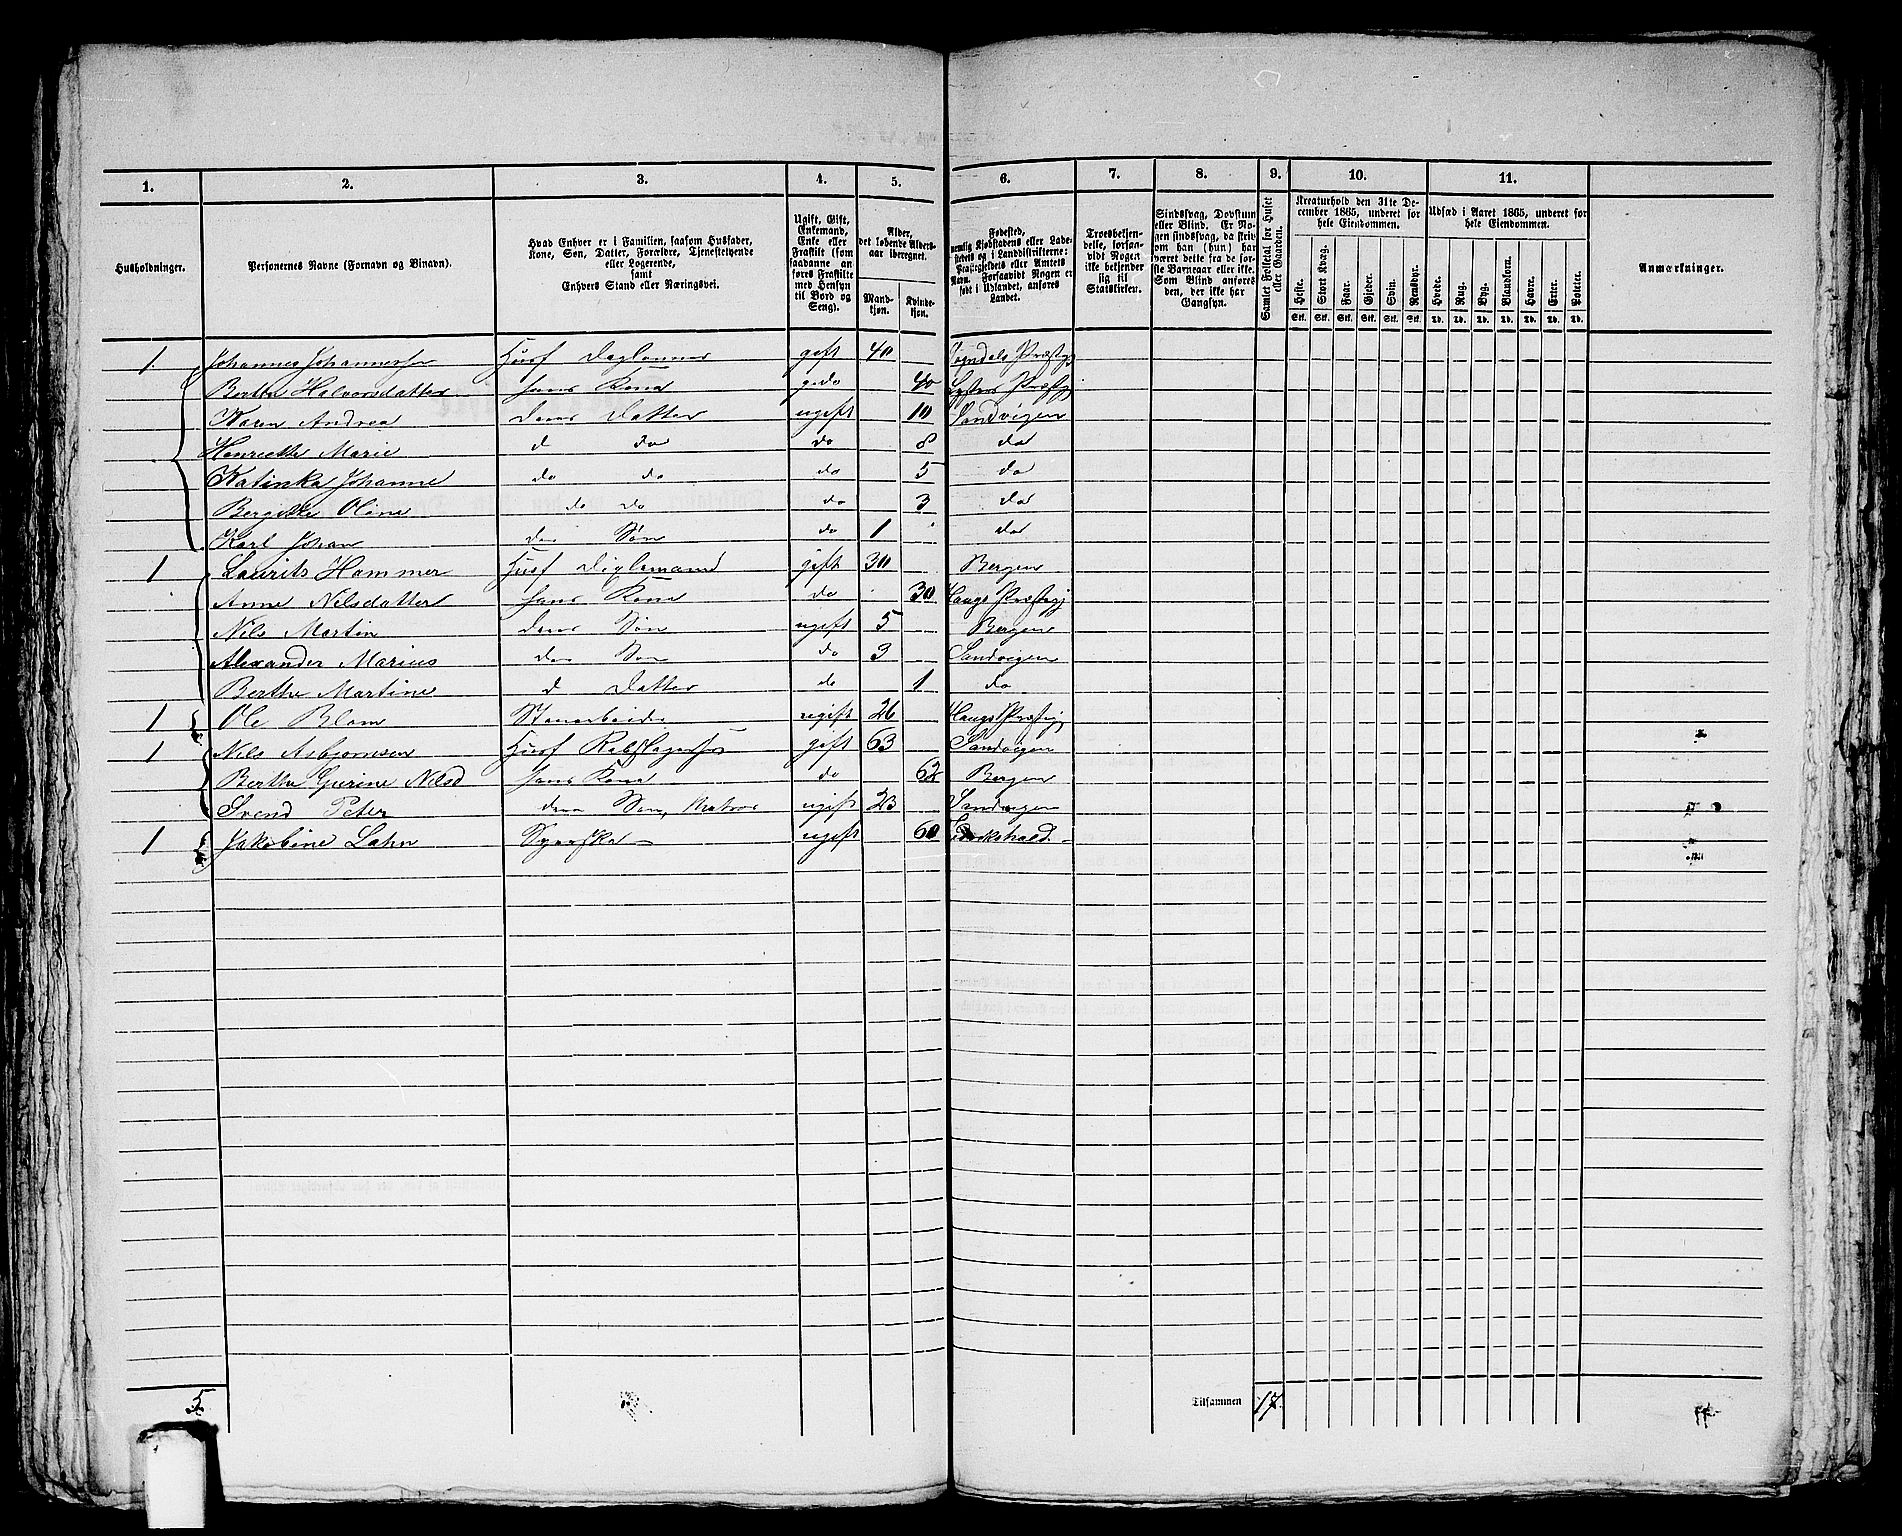 1. 2. 3. 4. 5. 6. 7. 8. 9. 10. 11.
Husholdninger.
Personernes Navne (Fornavn og Binavn).
Hvad Enhver er i Familien, saasom Husfader,
Kone, Søn, Datter, Forældre, Tjenestetyende
eller Logerende,
samt
Enhvers Stand eller Næringsvei.
Ugift, Gift,
Enkemand,
Enke eller
Fraskilt (som
saadanne an-
føres Fraskilte
med Hensyn
til Bord og
Seng).
Alder,
det løbende Alders-
aar iberegnet.
Mand-
kjøn.
Kvinde-
kjøn.
Fødested,
nemlig Kjøbstadens eller Lade-
stedets og i Landdistrikterne:
Præstegjeldets eller Amtets
Navn. Forsaavidt Nogen er
født i Udlandet, anføres
Landet.
Troesbekjen-
delse, forsaa-
vidt Nogen
ikke bekjender
sig til
Statskirken.
Sindssvag, Døvstum
eller Blind. Er No-
gen sindssvag, da skriv
om han (hun) har
været dette fra de før-
ste Barneaar eller ikke.
Som Blind anføres
den, der ikke har
Gangsyn.
Samlet Folketal for Huset
eller Gaarden.
Kreaturhold den 31te De-
cember 1865, underet for
hele Eiendommen.
Heste. Stort Kvæg. Faar. Gjeder. Svin. Rensdyr.
Stk. Stk. Stk. Stk. Stk. Stk.
Udsæd i Aaret 1865, underet for
hele Eiendommen.
Hvede. Rug. Byg. Blandkorn. Havre. Erter. Poteter.
Td. Td. Td. Td. Td. Td. Td.
Anmærkninger.
1. Johannes Johannessen Husf Daglønner gift 40 Præstgj
Berthe Halvorsdatter hans Kone do 40 Præstgj
Karen Andrea dens Datter ugift 10 Sandvigen
Henriette Marie d do do 8 do
Katinka Johanne do do do 5 do
Bergitte Oline do do do 3 do
Karl Johan den Søn do 1 do
1 Laurits Hammer Husf gift 30 Bergen
Anne Nilsdatter hans Kone do 30 Haugs Præstgj
Nils Martin dens Søn ugift 5 Bergen
Alexander Marius den Søn do 3 Sandvigen
Berthe Martine d Datter do 1 do
1 Ole Blom Stenarbeider ugift 26 Haugs Præstgj
1 Nils Asbjørnsen Husf gift 63 Sandvigen
Berthe Gurine Nilsd hans Kone do 62 Bergen
Svend Peter den Søn, Matros ugift 23 Sandvigen
1 Jakobine Lahn Syerske ugift 60
5 Tilsammen 17.